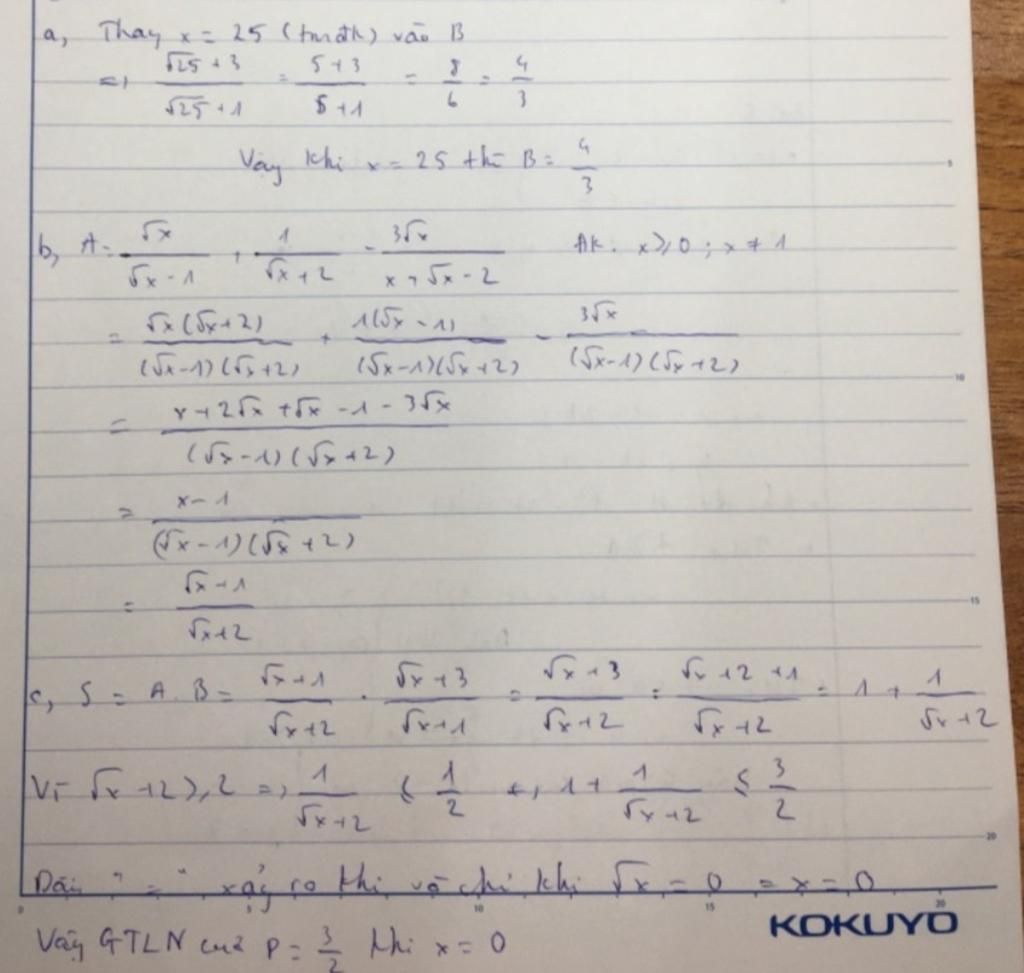 a, Thay x = 25 (tmđk) vào B
=> (√25 + 3)/(√25 + 1) = (5 + 3)/(5 + 1) = 8/6 = 4/3
Vậy khi x = 25 thì B = 4/3
b, A = √x/(√x - 1) + 1/(√x + 2) - 3√x/(x + √x - 2) ĐK: x ≥ 0 ; x ≠ 1
= √x(√x + 2)/((√x - 1)(√x + 2)) + 1(√x - 1)/((√x - 1)(√x + 2)) - 3√x/((√x - 1)(√x + 2))
= (x + 2√x + √x - 1 - 3√x)/((√x - 1)(√x + 2))
= (x - 1)/((√x - 1)(√x + 2))
= (√x + 1)/(√x + 2)
c, S = A . B = (√x + 1)/(√x + 2) . (√x + 3)/(√x + 1) = (√x + 3)/(√x + 2) = (√x + 2 + 1)/(√x + 2) = 1 + 1/(√x + 2)
Vì √x + 2 ≥ 2 => 1/(√x + 2) ≤ 1/2 => 1 + 1/(√x + 2) ≤ 3/2
Dấu "=" xảy ra khi và chỉ khi √x = 0 = x = 0
Vậy GTLN của P = 3/2 khi x = 0
5
10
15
20
0 5 10 15 20
KOKUYO